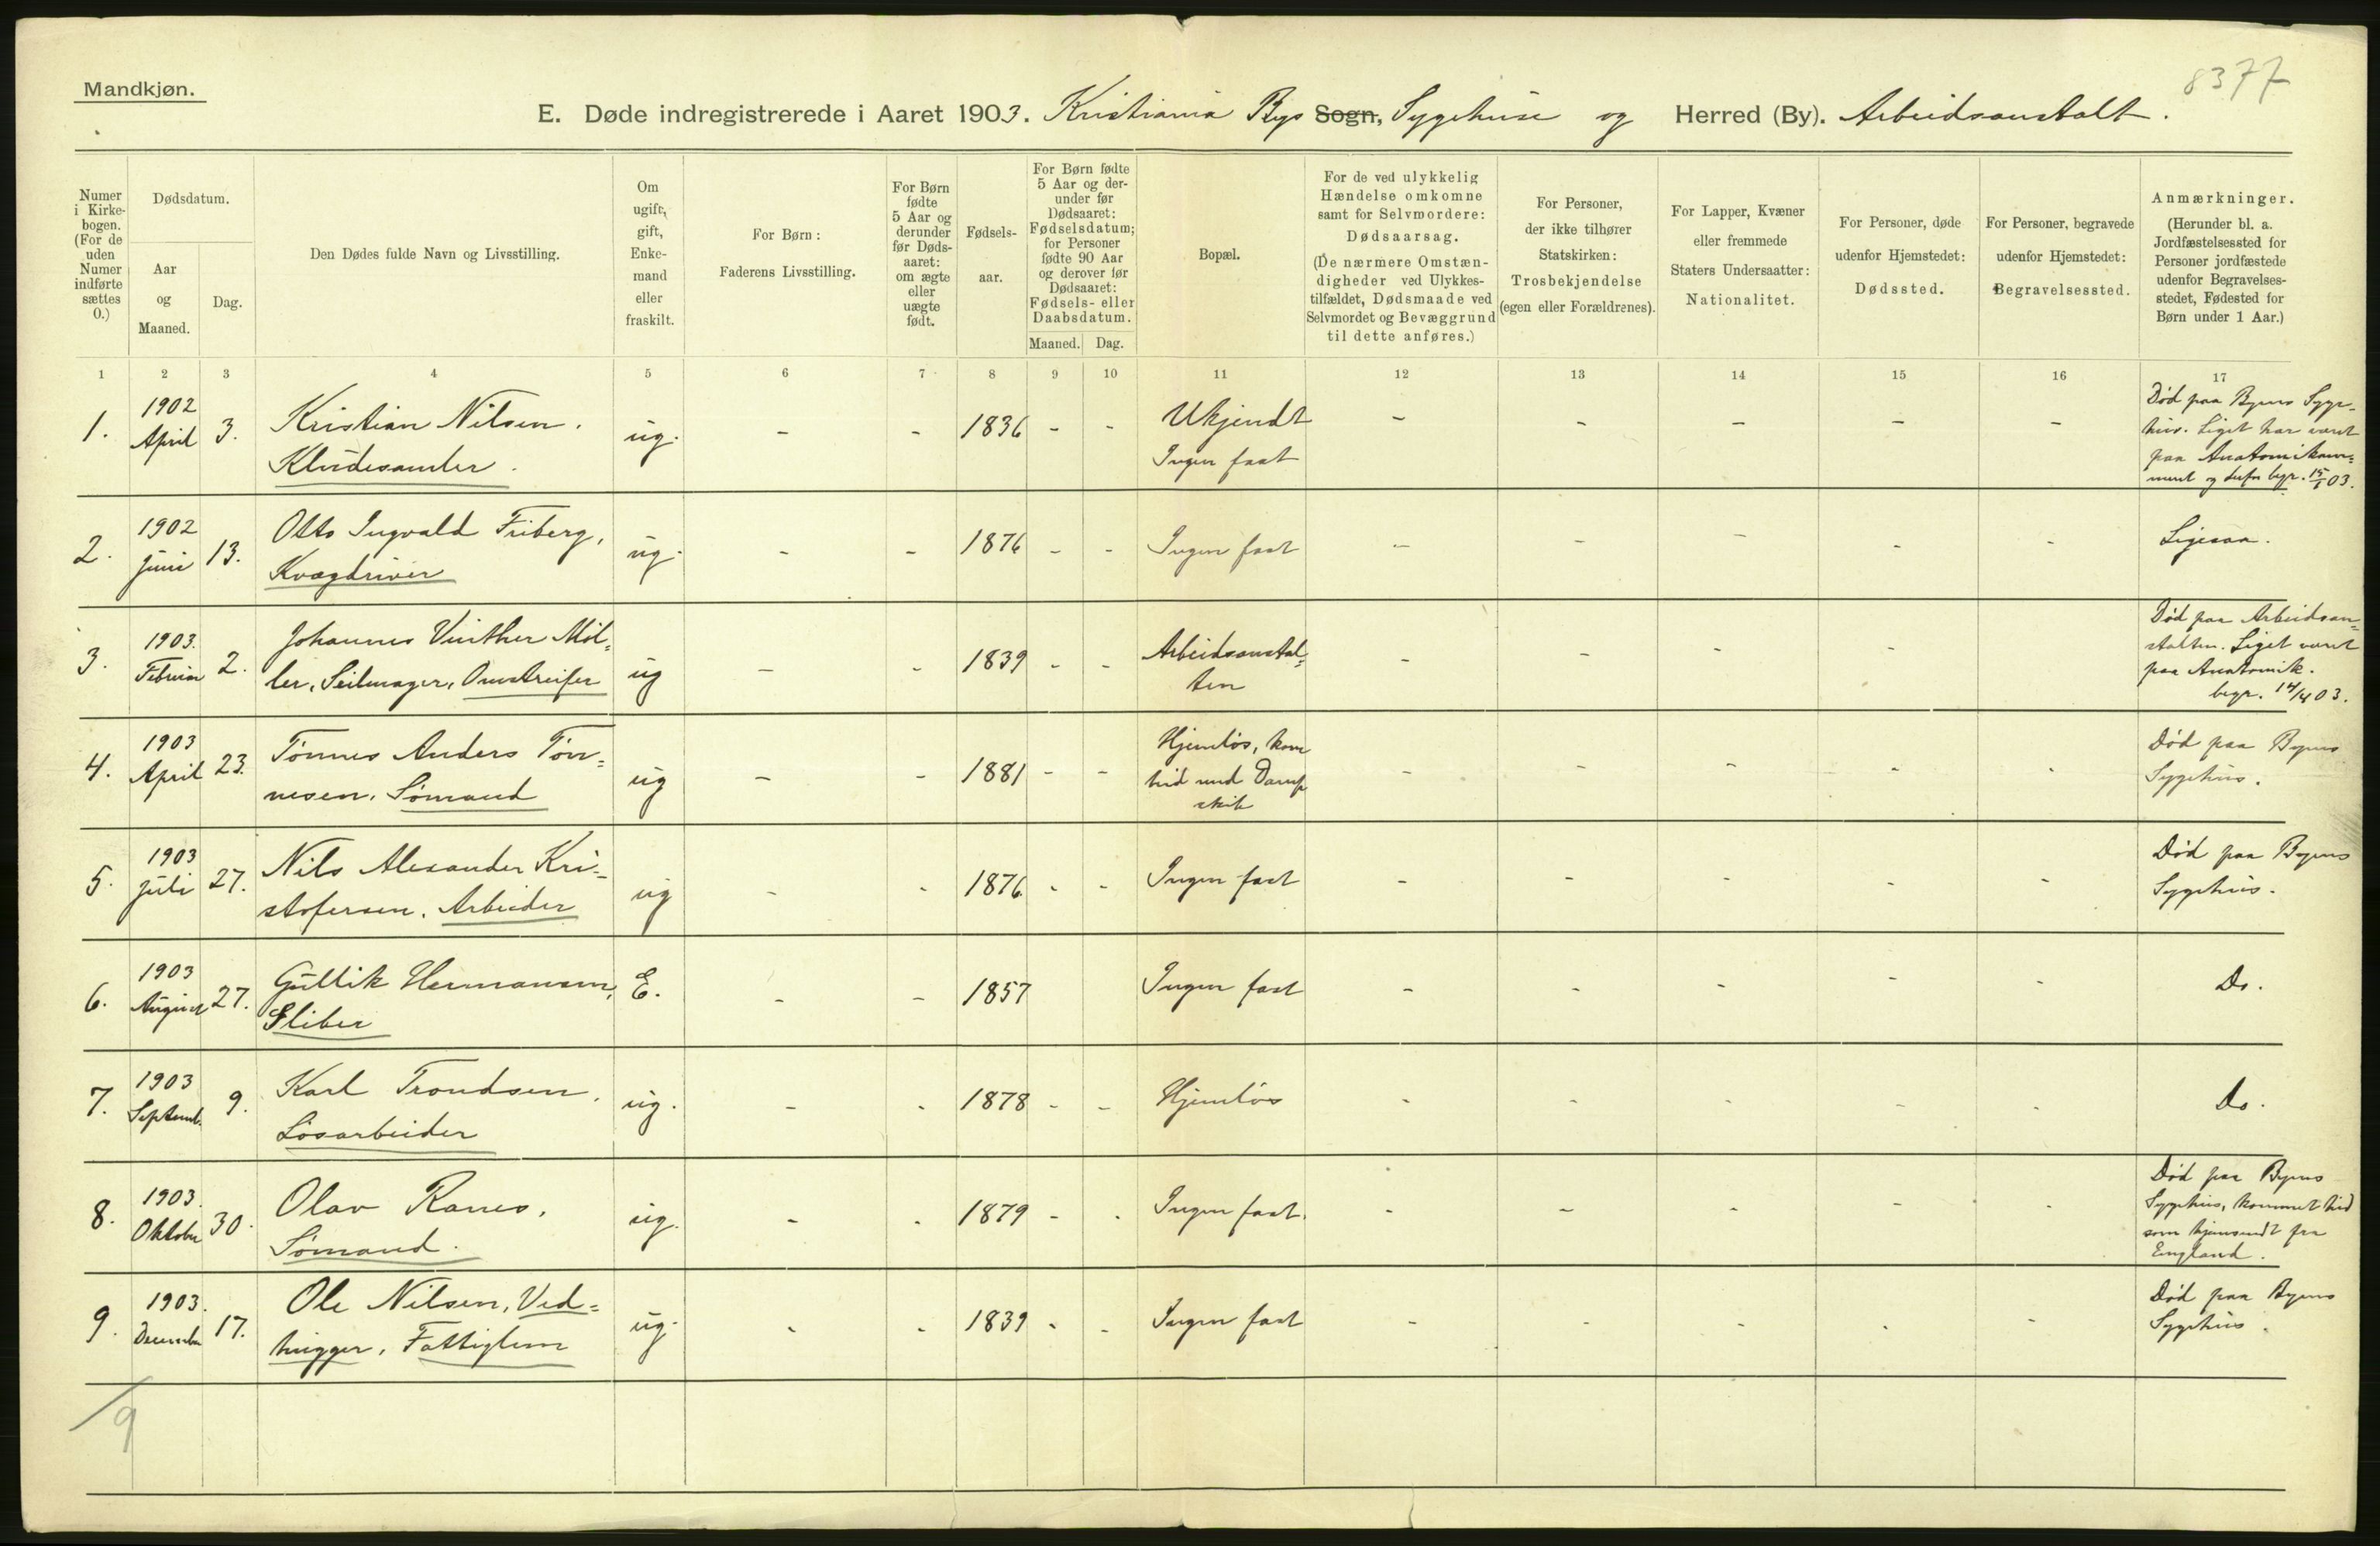 Mandkjøn.
8377
E. Døde indregistrerede i Aaret 1903. Kristiania Bys Sogn, Sygehuse og Herred (By). Arbeidsanstalt.
Numer i Kirkebogen. (For de uden Numer indførte sættes 0.)
Dødsdatum.
Aar og Maaned.
Dag.
Den Dødes fulde Navn og Livsstilling.
Om ugift, gift, Enkemand eller fraskilt.
For Børn: Faderens Livsstilling.
For Børn fødte 5 Aar og derunder før Dødsaaret: om ægte eller uægte født.
Fødselsaar.
For Børn fødte 5 Aar og derunder før Dødsaaret: Fødselsdatum; for Personer fødte 90 Aar og derover før Dødsaaret: Fødsels- eller Daabsdatum.
Maaned. Dag.
Bopæl.
For de ved ulykkelig Hændelse omkomne samt for Selvmordere: Dødsaarsag. (De nærmere Omstændigheder ved Ulykkestilfældet, Dødsmaade ved Selvmordet og Bevæggrund til dette anføres.)
For Personer, der ikke tilhører Statskirken: Trosbekjendelse (egen eller Forældrenes).
For Lapper, Kvæner eller fremmede Staters Undersaatter: Nationalitet.
For Personer, døde udenfor Hjemstedet: Dødssted.
For Personer, begravede udenfor Hjemstedet: Begravelsessted.
Anmærkninger. (Herunder bl. a. Jordfæstelsessted for Personer jordfæstede udenfor Begravelsesstedet, Fødested for Børn under 1 Aar.)
1 2 3 4 5 6 7 8 9 10 11 12 13 14 15 16 17
1. 1902 April 3. Kristian Nilsen. Kludesamler. ug. - - 1836 - - Ukjendt Ingen fast - - - - - Død paa Byens Sygehus. Liget har været paa Anatomikammeret og derfor begr. 15/1 03.
2. 1902 Juni 13. Otto Ingvald Friberg, Kvægdriver ug. - - 1876 - - Ingen fast - - - - - Ligesaa.
3. 1903. Februar 2. Johannes Vinther Møller, Seilmager, Omstreifer ug - - 1839 - - Arbeidsanstalten - - - - Død paa Arbeidsanstalten. Liget været paa Anatomik. begr. 14/4 03.
4. 1903 April 23. Tønnes Anders Tønnesen, Sømand ug - - 1881 - - Hjemløs, kom hid med Dampskib - - - - - Død paa Byens Sygehus.
5. 1903 Juli 27. Nils Alexander Kristofersen, Arbeider ug - - 1876 - - Ingen fast - - - - - Død paa Byens Sygehus.
6. 1903 August 27. Gullik Hermansen, Sliber E. - - 1857 Ingen fast - - - - - Do.
7. 1903 Septemb. 9. Karl Trondsen, Løsarbeider ug. - - 1878 - - Hjemløs - - - - - Do.
8. 1903. Oktober 30. Olav Ranes, Sømand. ug. - - 1879 - - Ingen fast. - - - - - Død paa Byens Sygehus, kommet hid som hjemsendt fra England.
9. 1903. December 17. Ole Nilsen, Vedhugger, Fattiglem ug. - - 1839 - - Ingen fast - - - - - Død paa Byens Sygehus.
/9